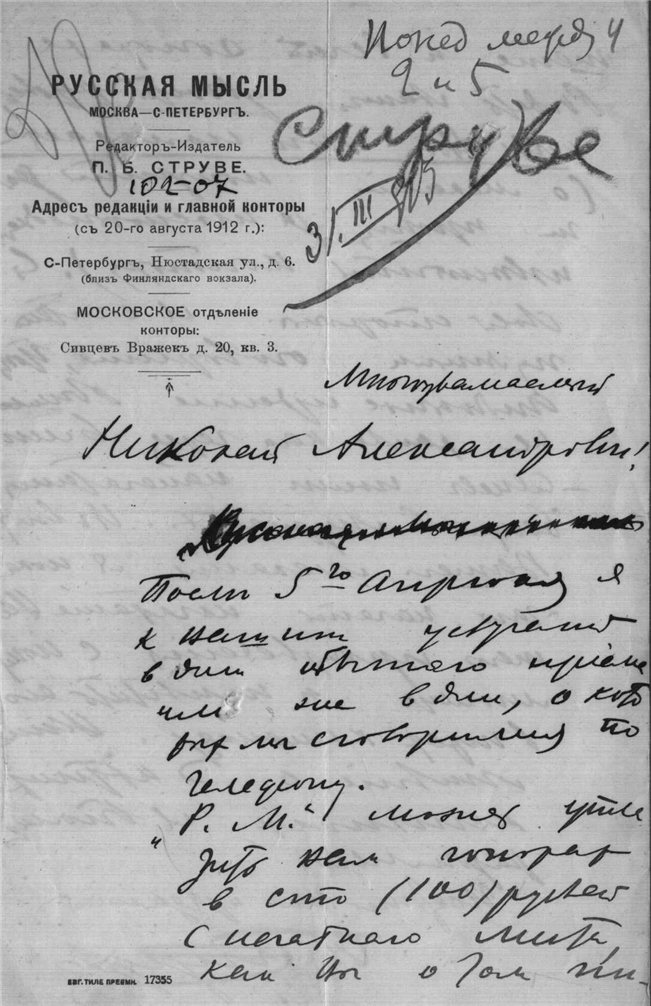 Понед между 4
и 5
Струве
31/III 915
РУССКАЯ МЫСЛЬ
МОСКВА—С-ПЕТЕРБУРГЪ.
Редакторъ-Издатель
П. Б. СТРУВЕ.
102-07
Адресъ редакціи и главной конторы
(съ 20-го августа 1912 г.):
С-Петербургъ, Нюстадская ул., д. 6.
(близъ Финляндскаго вокзала).
МОСКОВСКОЕ отдѣленіе
конторы:
Сивцевъ Вражекъ д. 20, кв. 3.
Многоуважаемый
Николай Александрович!
После 5го Апреля я
к вашим услугам
в дни обычного приема
или же в дни, о кото
рых мы сговоримся по
телефону.
„Р. М." может упла
тить вам гонорар
в сто (100) рублей
с печатного листа,
как Вы о том пи-
ВЗГ. ТИПЕ ПРЕВМИ. 17355